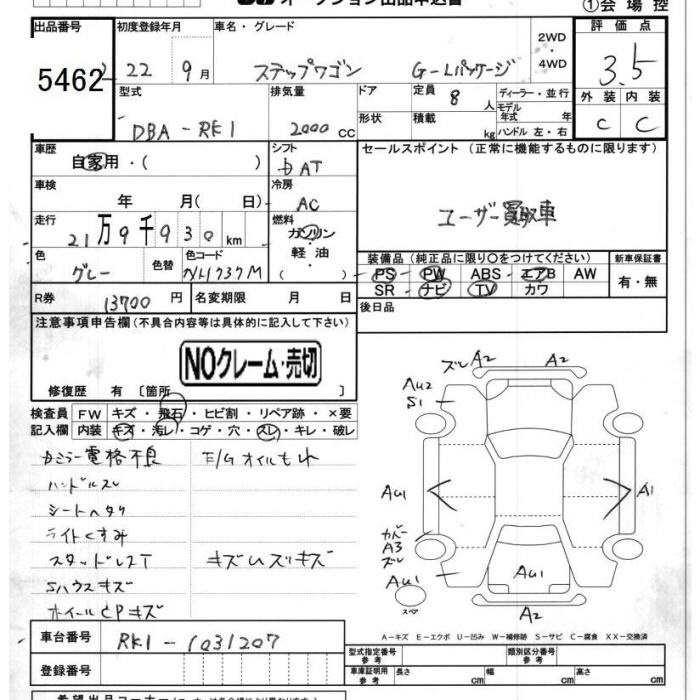 オークション出品申込書 ①会場控
出品番号 初度登録年月 車名・グレード 2WD・4WD 評価点
5462 22 9月 ステップワゴン G-Lパッケージ 3.5
型式 排気量 ドア 定員 8人 ディーラー・並行 外装 内装
DBA-RK1 2000cc 形状 積載 kg モデル年式 年 ハンドル 左・右 C C
車歴 シフト セールスポイント (正常に機能するものに限ります)
自家用・( ) AT
車検 冷房
年 月(日) AC
ユーザー買取車
走行 燃料
21万9千930km ガソリン・軽油・( )
色 色替 色コード 装備品(純正品に限り○をつけてください) 新車保証書
グレー NH737M PS PW ABS エアB AW 有・無
SR ナビ TV カワ
R券 13700円 名変期限 月 日 後日品
注意事項申告欄(不具合内容等は具体的に記入して下さい)
NOクレーム・売切
修復歴 有 [箇所 ]
検査員記入欄 FW キズ・飛石・ヒビ割・リペア跡・×要
内装 キズ・汚レ・コゲ・穴・スレ・キレ・破レ
カミラー電格不良 E/Gオイルもれ
ハンドルスレ
シートヘタリ
ライトくすみ
スタッドレスT キズUズリキズ
Sハウスキズ
ホイールCPキズ
ズレ A2 A2
AU2
S1
AU1 A1
カバー
A3
ズレ
AU1 AU1
スペア A2
A-キズ E-エクボ U-凹み W-補修跡 S-サビ C-腐食 XX-交換済
車台番号 RK1-1031207
型式指定番号参考 類別区分番号参考
登録番号 車庫証明用参考 長さ cm 幅 cm 高さ cm